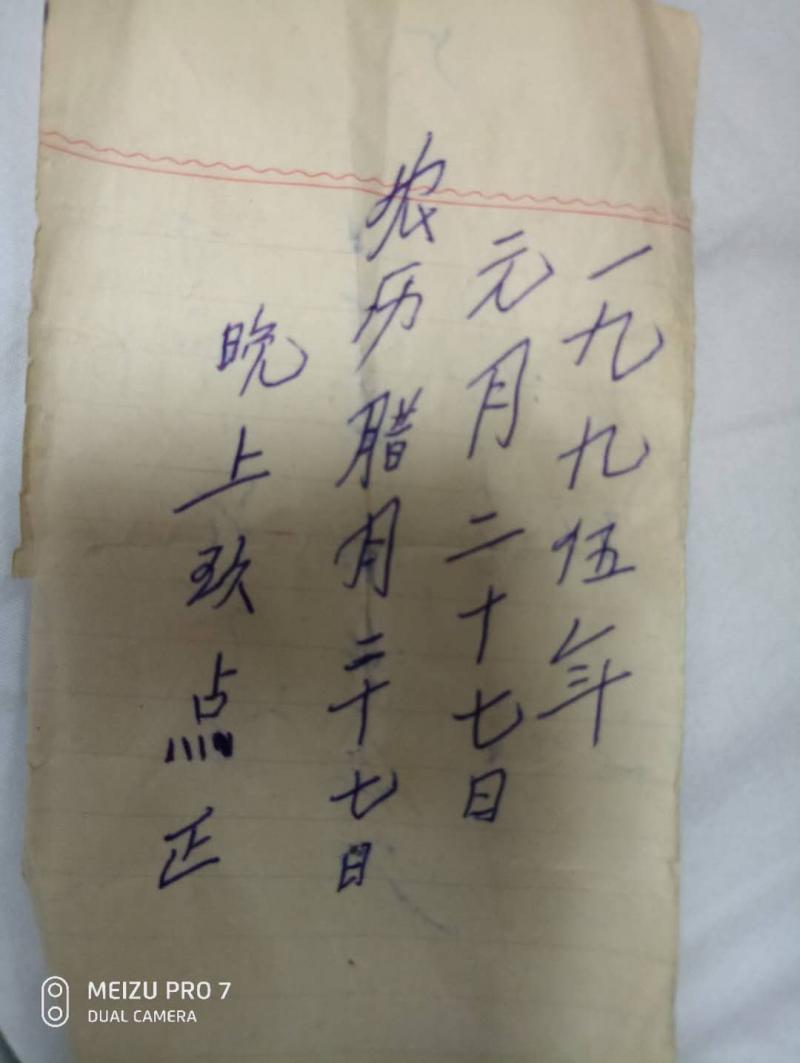 一九九伍年
元月二十七日
农历腊月二十七日
晚上玖点正
MEIZU PRO 7
DUAL CAMERA